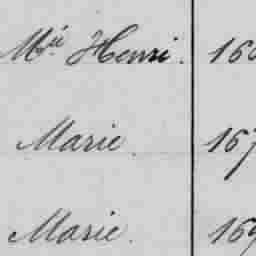 Mie Henri. 16
Marie. 167
Marie. 169